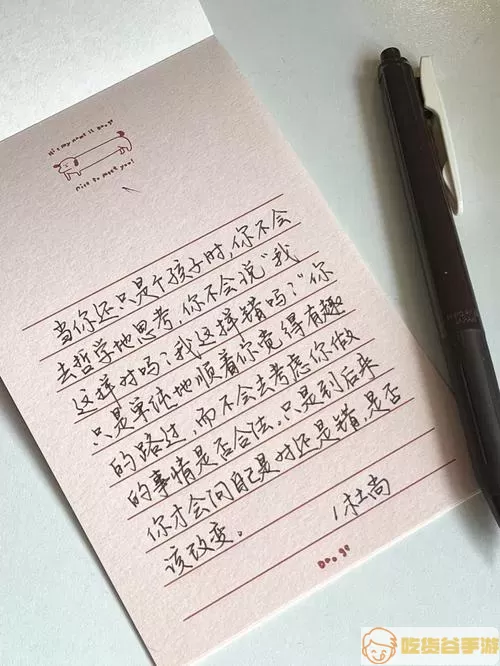 Hi~ my name is Doo.go
Nice to meet you!
当你还只是个孩子时，你不会
去哲学地思考，你不会说“我
这样对吗？我这样错吗？”你
只是单纯地顺着你觉得有趣
的路过，而不会去考虑你做
的事情是否合法。只是到后来
你才会问自己是对还是错，是否
该改变。
杜尚
Doo.go
JAPAN
吃货谷手游